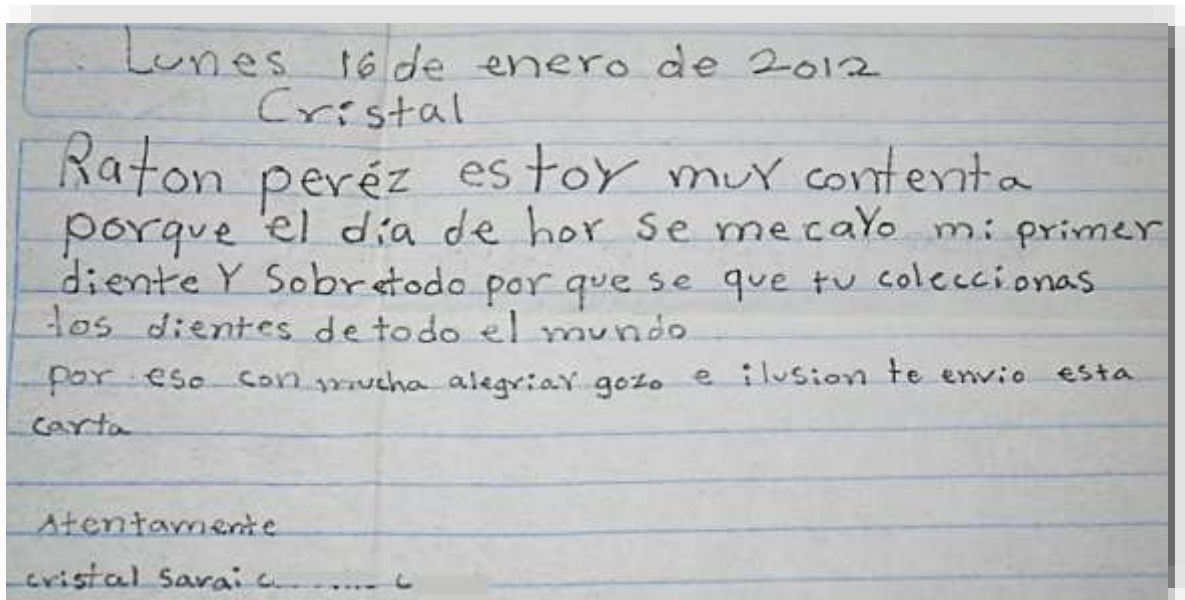 Lunes 16 de enero de 2012
Cristal
Raton peréz estoy muy contenta
porque el día de hoy se me cayo mi primer
diente y sobretodo por que se que tu coleccionas
los dientes de todo el mundo
por eso con mucha alegria y gozo e ilusion te envio esta
carta
Atentamente
cristal sarai c....... c